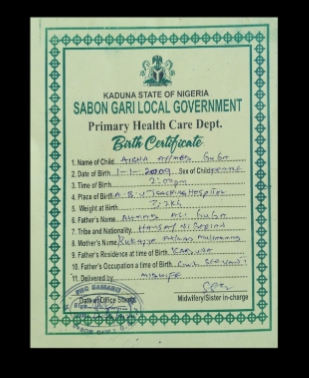 KADUNA STATE OF NIGERIA
SABON GARI LOCAL GOVERNMENT
Primary Health Care Dept.
Birth Certificate
1. Name of Child AISHA AHMED GUGA
2. Date of Birth 1-1-2009 Sex of Child
3. Time of Birth 2:00pm
4. Place of Birth A.B.U TEACHING HOSPITAL
5. Weight at Birth
6. Father's Name AHMAD ALI GUGA
7. Tribe and Nationality HAUSA / NIGERIAN
8. Mother's Name
9. Father's Residence at time of Birth KADUNA
10. Father's Occupation a time of Birth Civil SERVANT
11. Delivered by MIDWIFE
Date of Office Stamp Midwifery/Sister in-charge